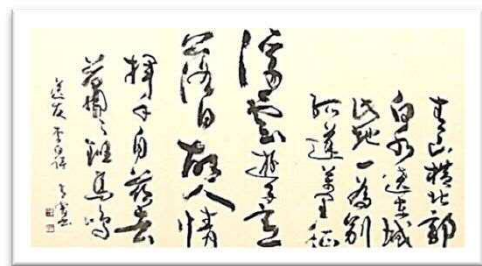 青山橫北郭
白水遶東城
此地一為別
孤蓬萬里征
浮雲遊子意
落日故人情
揮手自茲去
蕭々班馬鳴
送友 李白詩